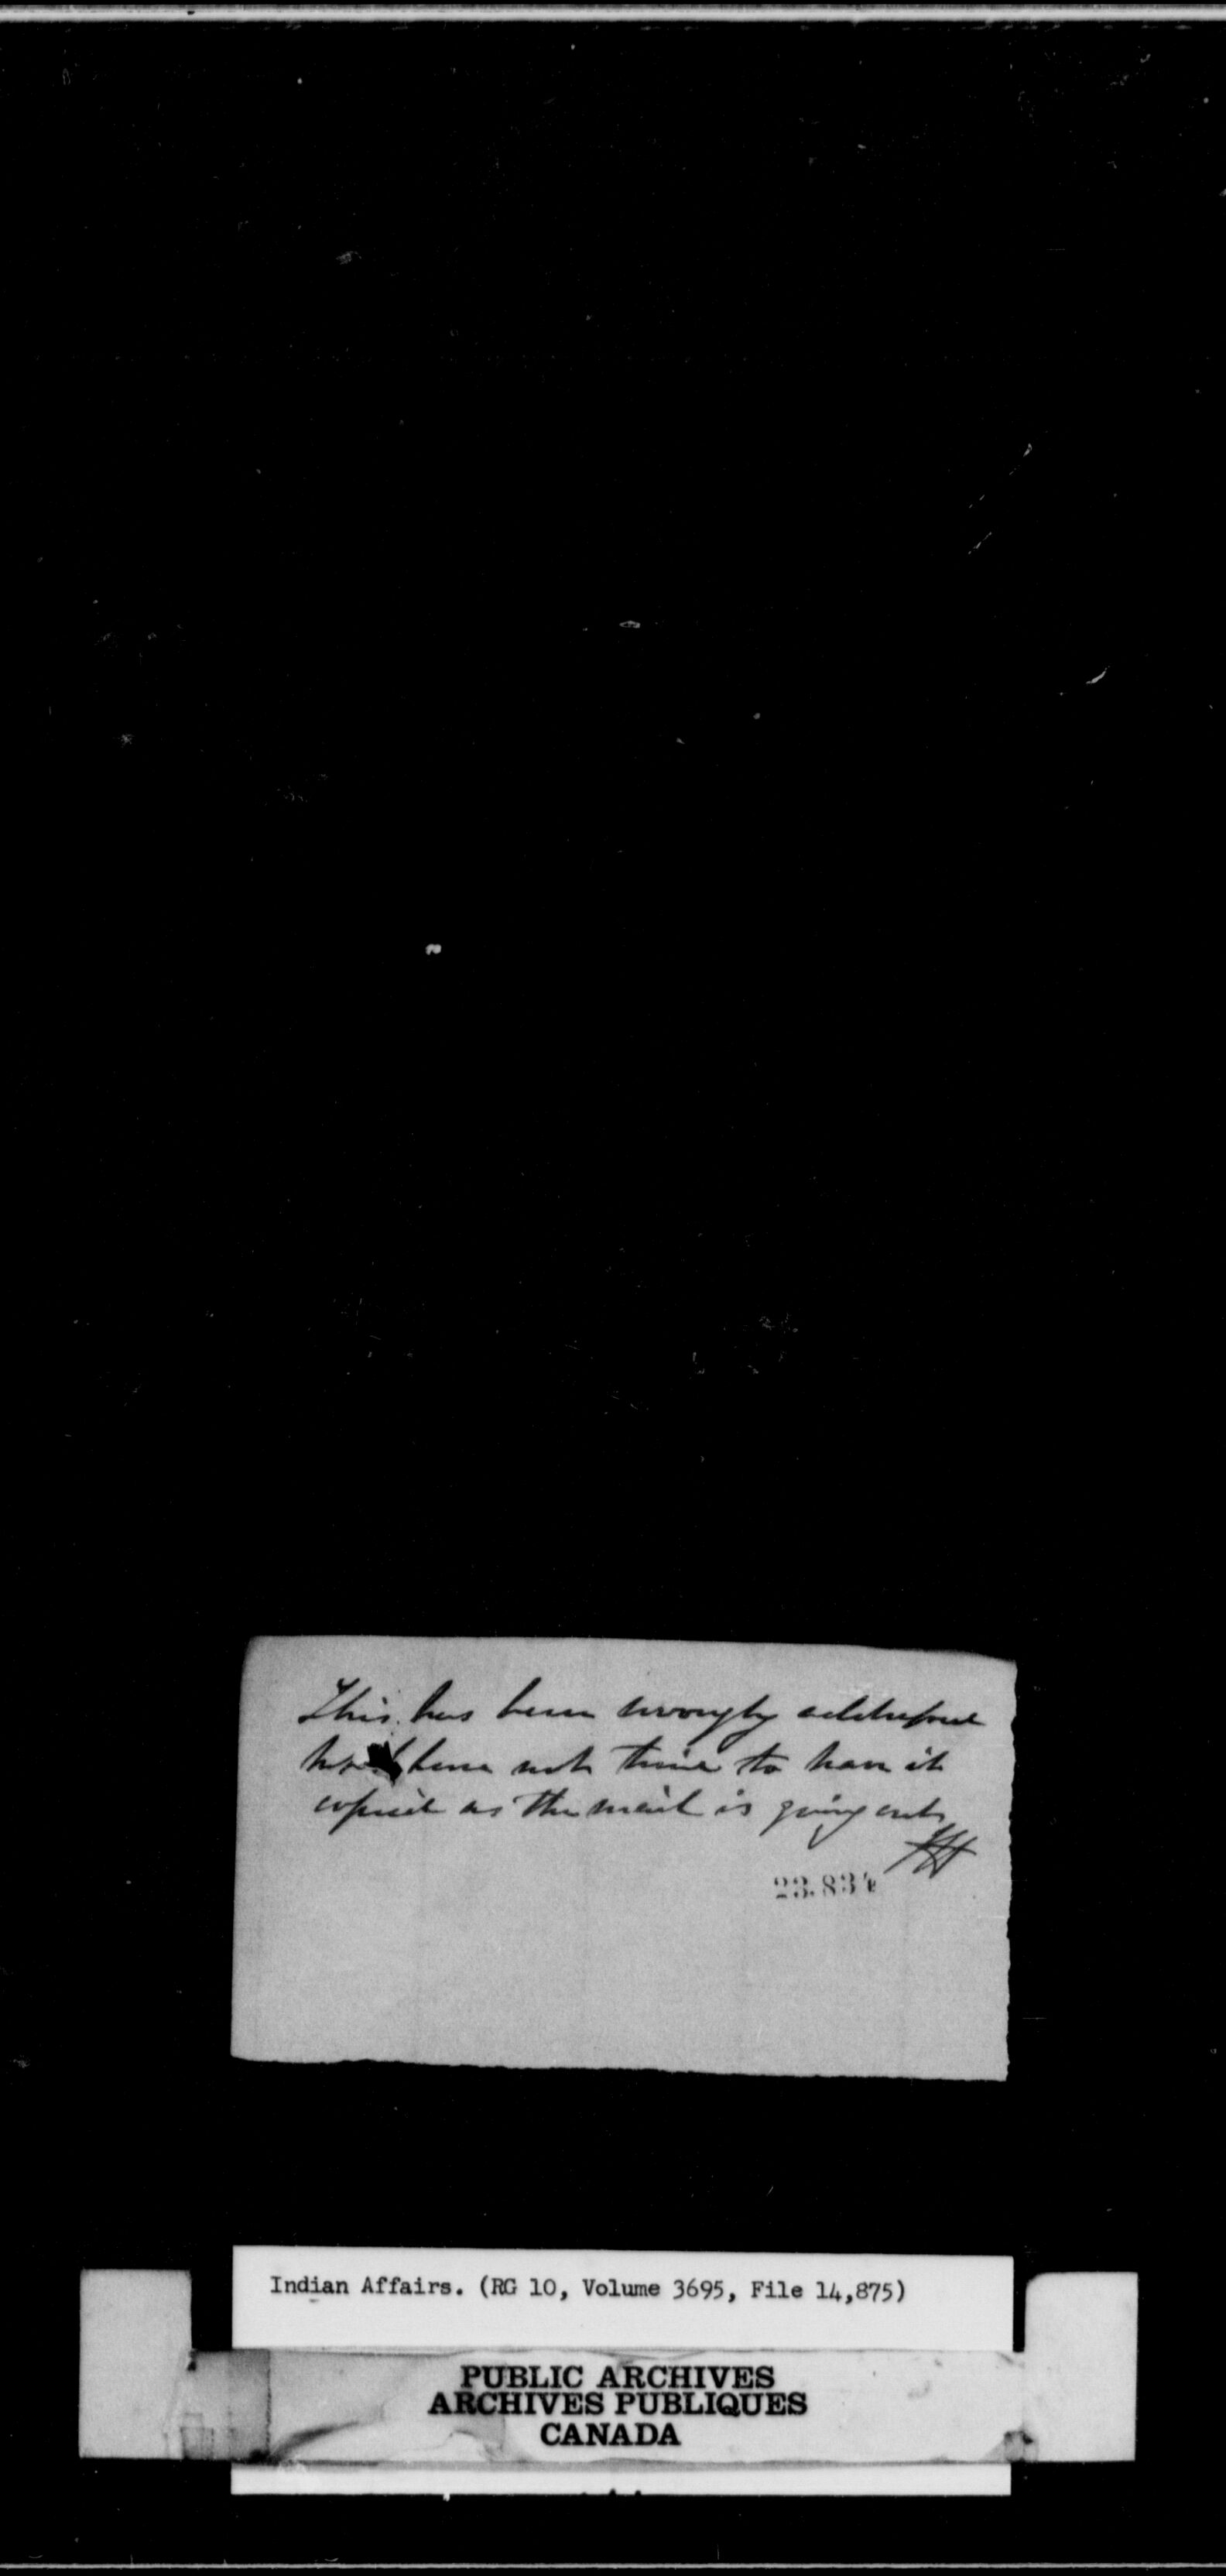 This has been wrongly addressed
but I have not time to have it
copied as the mail is going out
23.834
Indian Affairs. (RG 10, Volume 3695, File 14,875)
PUBLIC ARCHIVES
ARCHIVES PUBLIQUES
CANADA